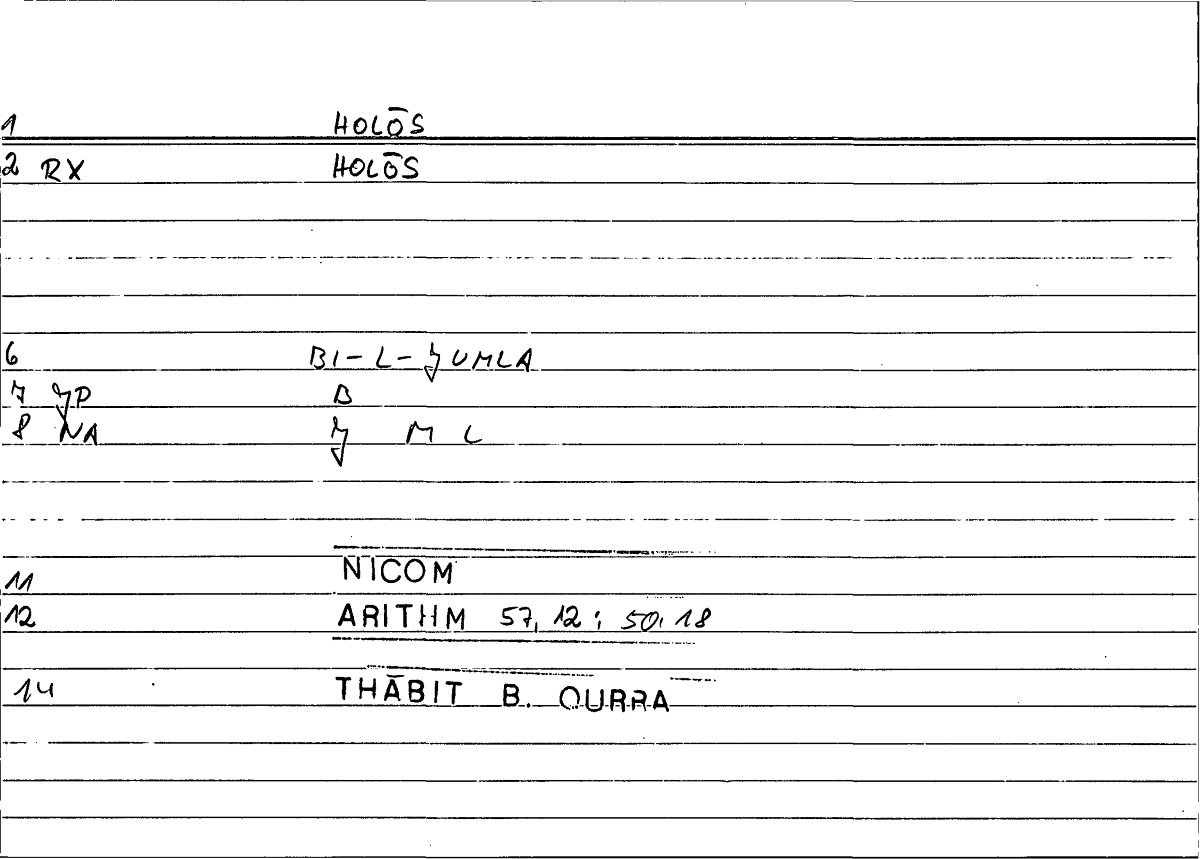 1 HOLŌS
2 RX HOLŌS
6 BI-L-JUMLA
7 JP B
8 NA J M L
11 NICOM
12 ARITHM 57, 12 ; 50, 18
14 THĀBIT B. QURRA